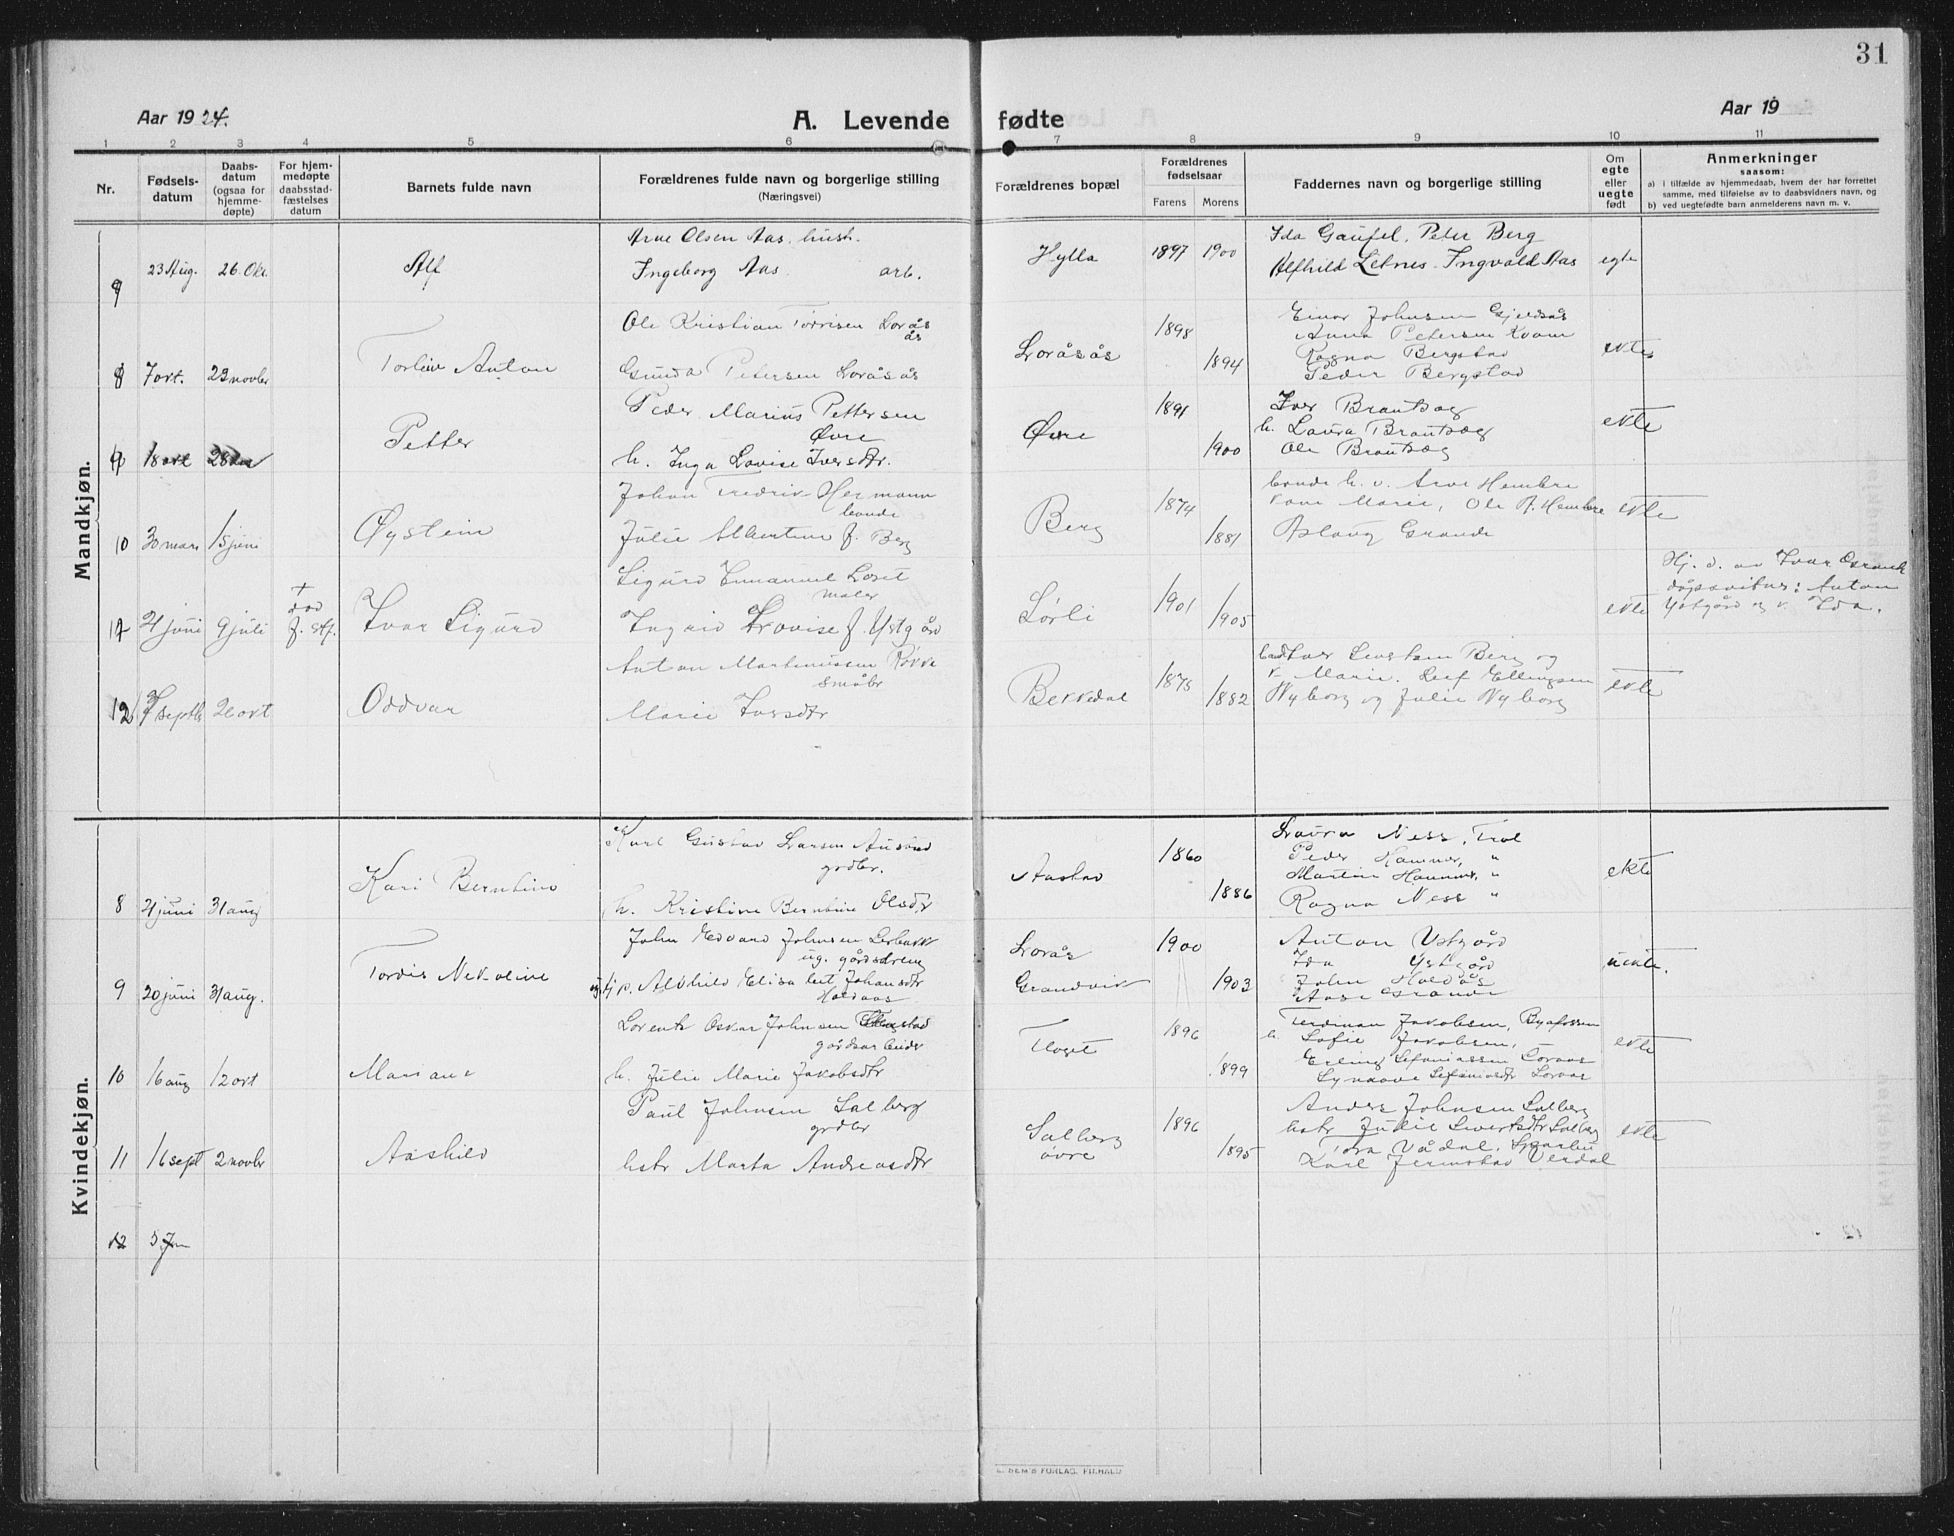 31
Aar 1924.
A. Levende fødte
Aar 19
1 2 3 4 5 6 7 8 9 10 11
Nr.
Fødsels-
datum
Daabs-
datum
(ogsaa for
hjemme-
døpte)
For hjem-
medøpte
daabsstad-
fæstelses
datum
Barnets fulde navn
Forældrenes fulde navn og borgerlige stilling
(Næringsvei)
Forældrenes bopæl
Forældrenes
fødselsaar
Farens Morens
Faddernes navn og borgerlige stilling
Om
egte
eller
uegte
født
Anmerkninger
saasom:
a) i tilfælde av hjemmedaab, hvem der har forrettet
samme, med tilføielse av to daabsvidners navn, og
b) ved uegtefødte barn anmelderens navn m. v.
Mandkjøn.
23 Aug. 26 Okt. Alf
Arne Olsen Aas
Ingeborg Aas arb.
Hylla 1897 1900
Ida Gaufel. Peter Berg
Alfhild Letnes. Ingvald Aas
egte
8 7 okt. 23 novbr Anton
Ole Kristian Lorås
ås
Gunda Petersen Loråsås
Loråsås 1898 1894
Einar Johnsen
Anna Petersen Kvam
Ragna Bergstad
Peder Bergstad
ekte
18 okt 28 Petter
Peder Marius Pettersen
Øvre
h. Inga Lovise Iversdtr.
Øvre 1891 1900
Iver Brautsæg
h. Laura Brautsæg
Ole Brautsæg
ekte
10 30 mars 15 juni Øystein
Johan Fredrik Hermann
bonde
Julie Albertine f. Berg
Berg 1874 1881
bonde h. v. Arne Hembre
kone Marie, Ole A. Hembre
Aslaug Grande
ekte
21 juni 9 juli
+
død
f. stf.
Ivar Sigurd
Sigurd Emmanuel Loset
maler
Ingrid Lovise f. Ystgård
Sørli 1901 1905
ekte
Hj. d. av Ivar
dåpsvitner: Anton
Ystgård og k. Ida.
12 7 septbr 26 okt Oddvar
Anton Martinussen Røkke
småbr
Marie Iversdtr
Bekkedal 1875 1882
Berg og
k Marie. Leif Ellingsen
Nyborg og Julie Nyborg
ekte
Kvindekjøn.
8 21 juni 31 aug Kari Berntine
Karl Gustav Larsen
grdbr.
h. Kristine Berntine Olsdtr
Aastad 1860 1886
Laura Ness, Trol
Peder Hammer, "
Martin Hammer, "
Ragna Ness "
ekte
9 20 juni 31 aug. Tordis Nekoline
John Edvard Johnsen
ug. gårdsdreng
og p. Alvhild Elisabet Johansdtr
Holdaas
Lorås
Grandvik
1900 1903
Anton Ystgård
Ida Ystgård
John Holdås
Aase Grande
uekte.
10 16 aug 12 okt Mariane
Lorents Oskar Johnsen
gårdsarbeider
h. Julie Marie Jakobsdtr
Floget 1896 1899
Ferdinan Jakobsen, Byafossen
h. Sofie Jakobsen,
Erling Sefaniassen Loraas
Synnøve Sefaniasdtr Loraas
ekte
11 16 sept 2 novbr Aashild
Paul Johnsen Salberg
grdbr
hstr Marta Andreasdtr
Salberg
øvre
1896 1895
Anders Johnsen Salberg
hstr Julie Sivertsdtr Salberg
Tora Vådal, Sparbu
Karl Jermstad Verdal
ekte
12 5 Jan